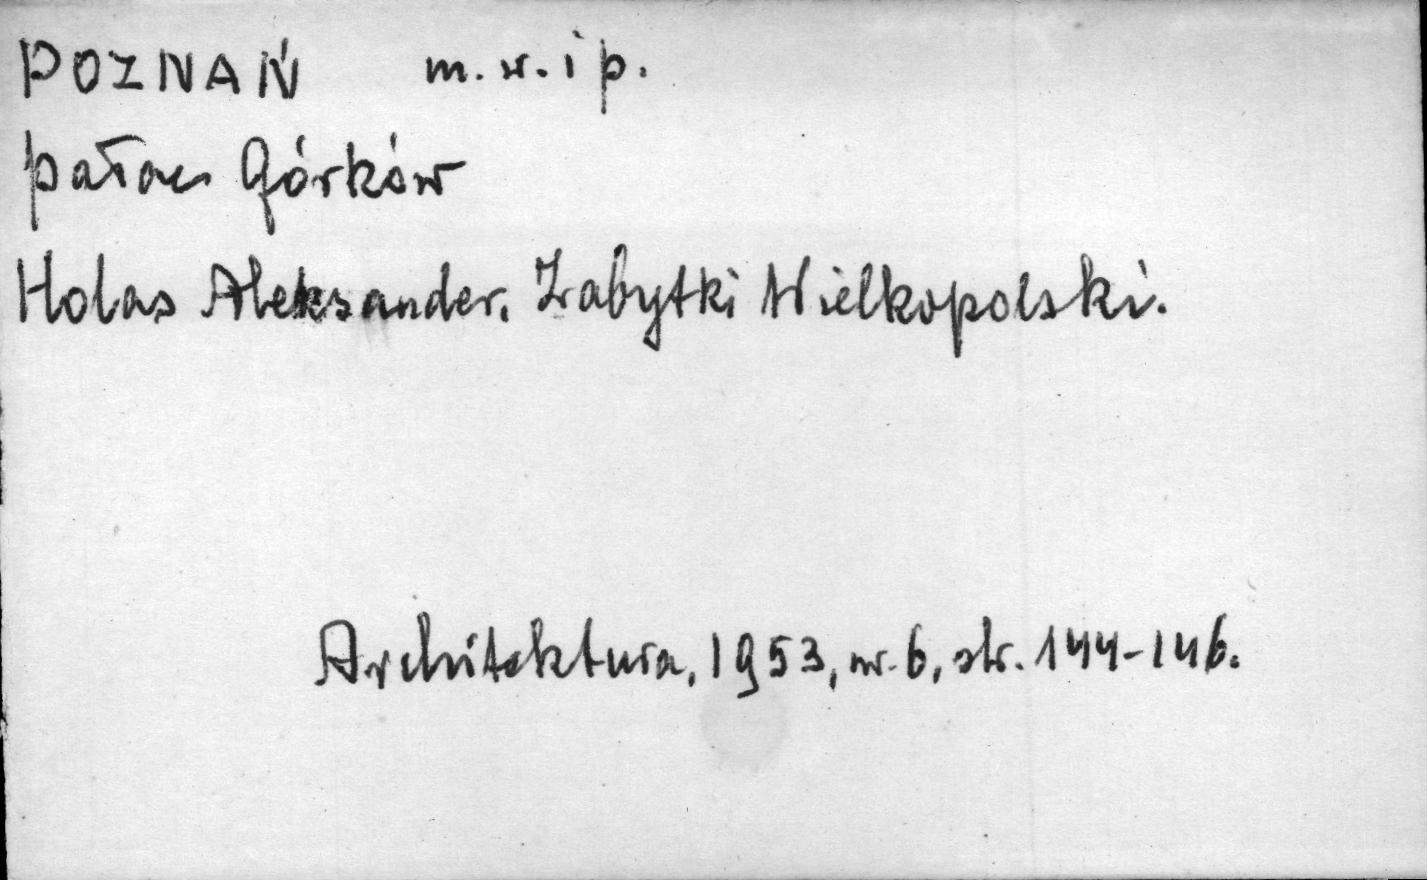 POZNAŃ m. w. i p.
pałac Górków
Holas Aleksander. Zabytki Wielkopolski.
Architektura, 1953, nr. 6, str. 144-146.